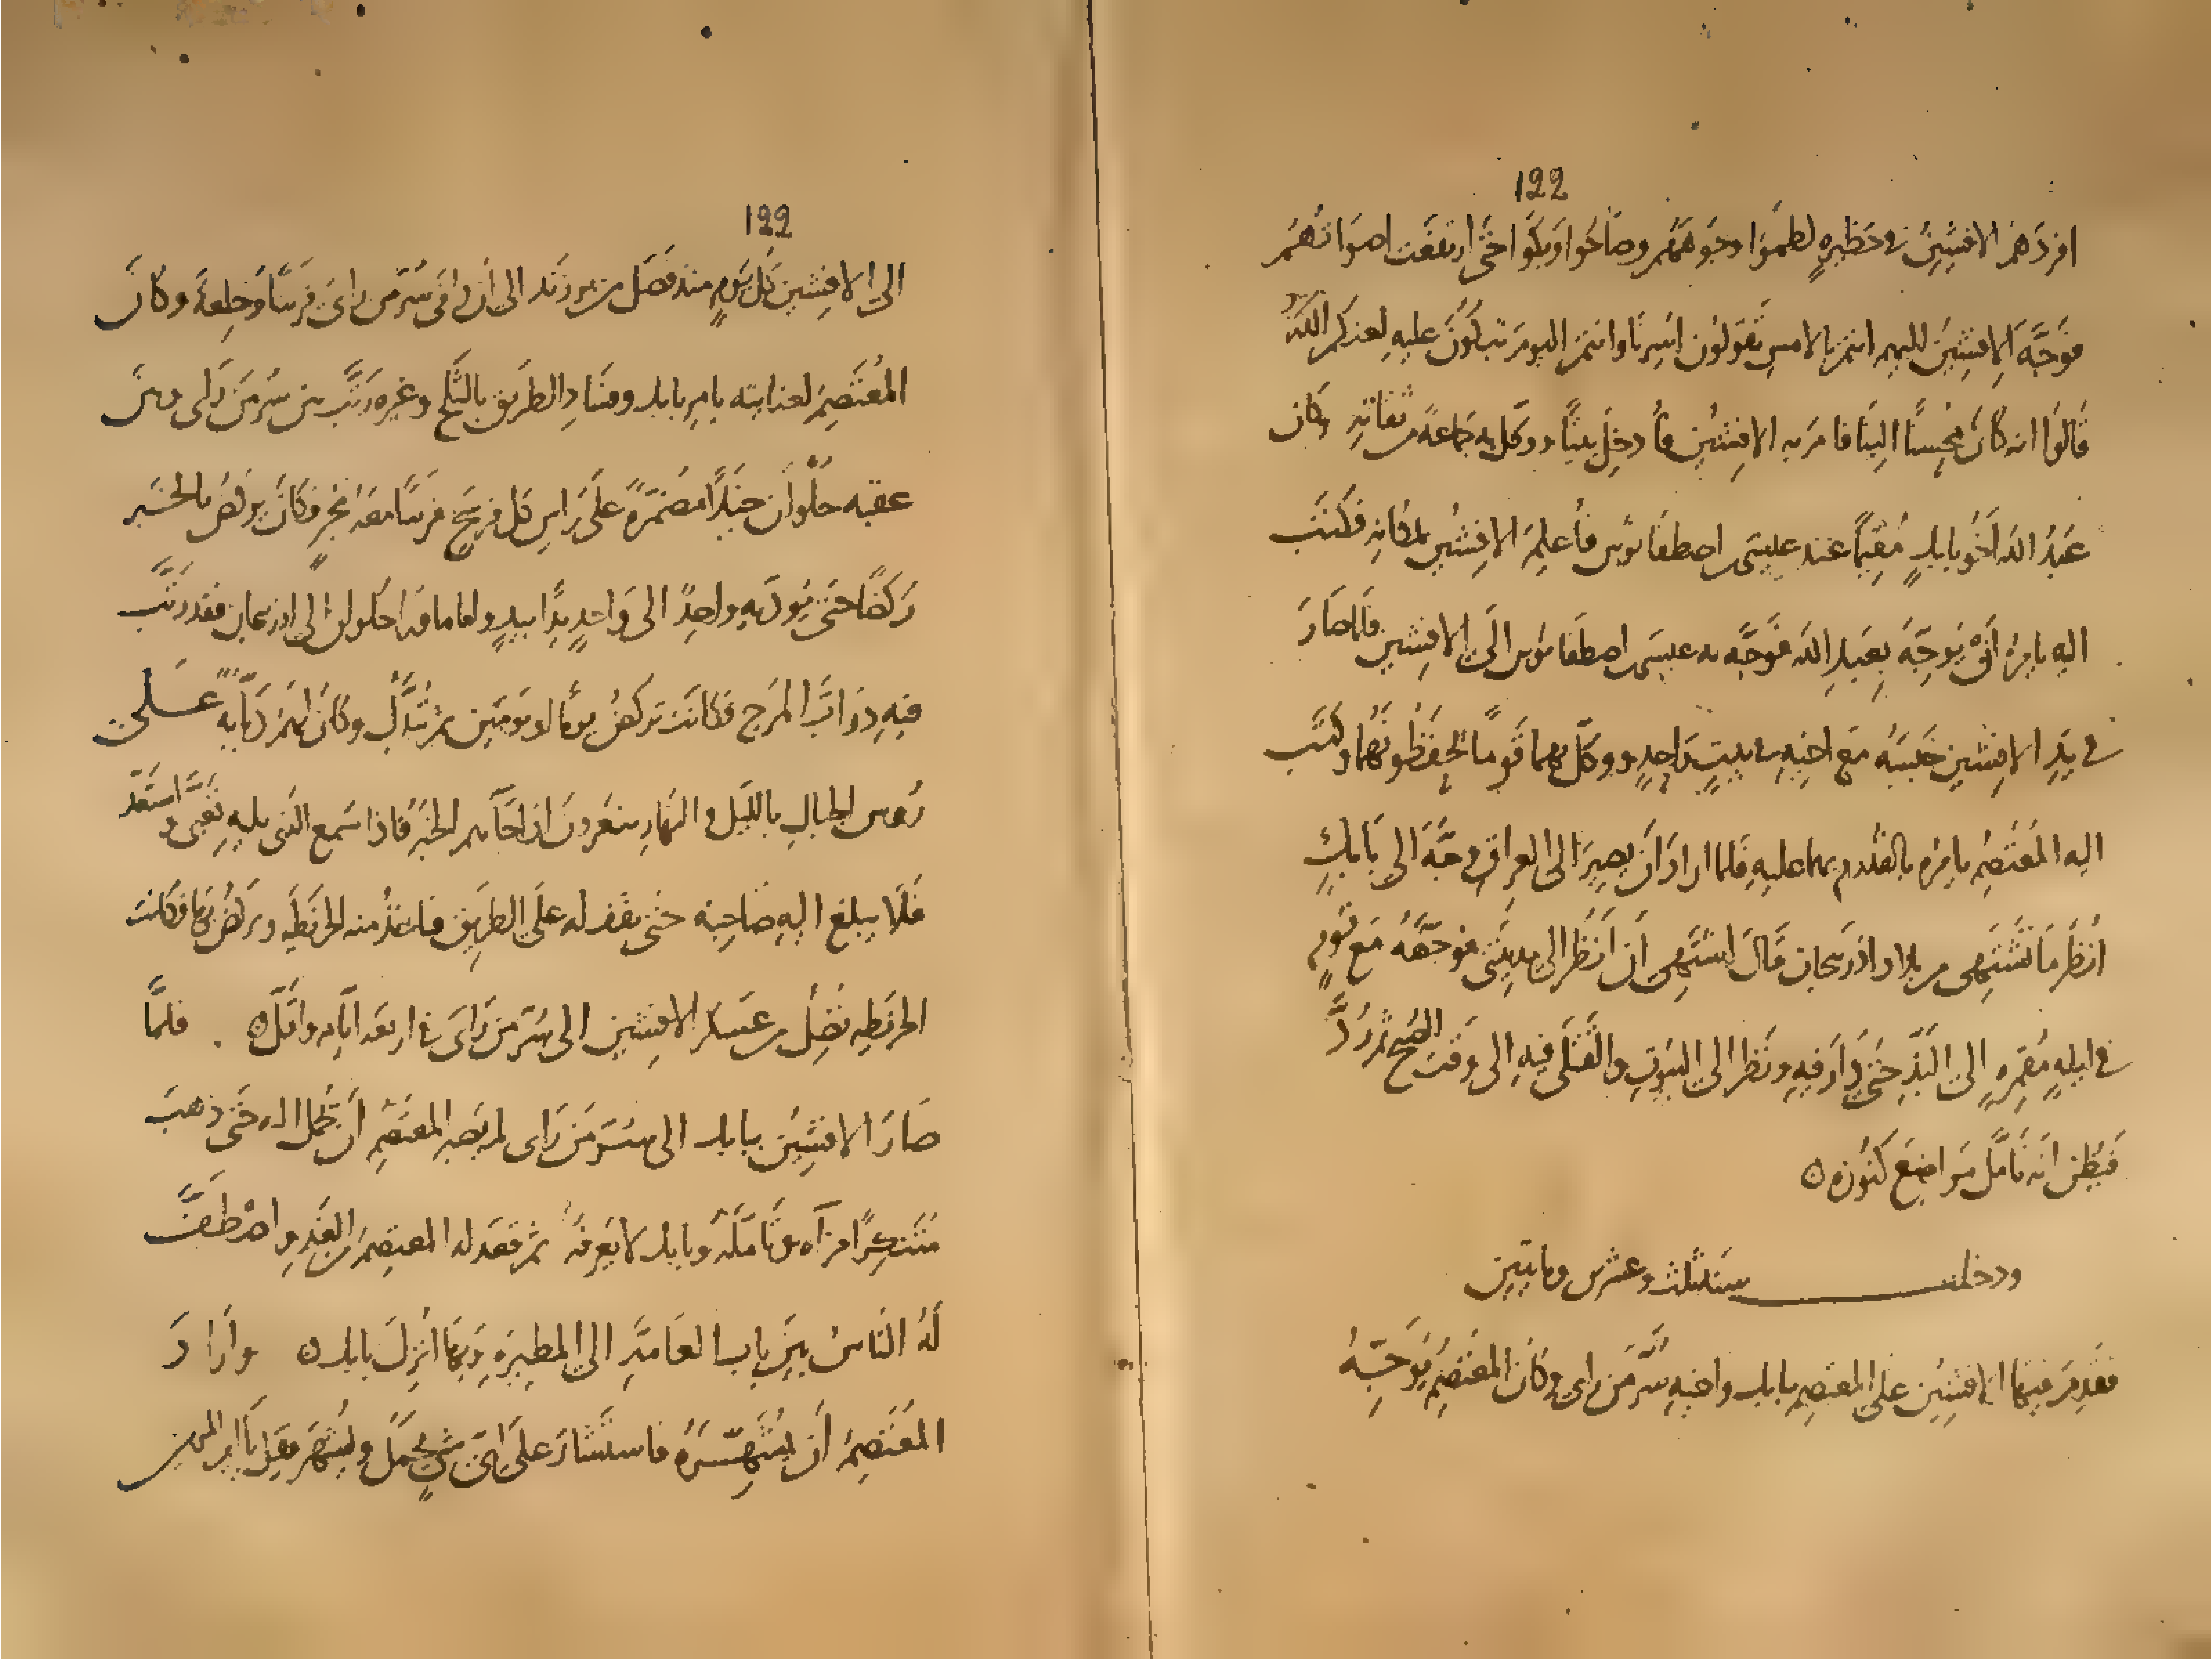 122
افردهم الافشين في حظيرةٍ لطموا وجوههم وصاحوا وبكوا حتى ارتفعت اصواتهم
فوجّه الافشين اليهم انتم بالامس تقولون اسرنا وانتم اليوم تبكون عليه لعنكم الله
قالوا انه كان يحسن الينا فامر به الافشين فأدخل بيتًا ووكّل به جماعةً من ثقاته وكان
عبد الله اخو بابك مقيمًا عند عيسى اصطفانوس فأعلم الافشين بمكانه فكتب
اليه يامره أنْ يوجّه بعبد الله فوجّه به عيسى اصطفانوس الى الافشين فلما صار
في يد الافشين حبسه مع اخيه في بيتٍ واحدٍ ووكّل بهما قومًا يحفظونهما وكتب
اليه المعتصم يامره بالقدوم بهما عليه فلما اراد أن يصير الى العراق وجّه الى بابك
انظر ما تشتهي من بلاد اذربيجان قال اشتهي أن انظر الى مدينتي فوجّهه مع قومٍ
في ليلةٍ مقمرةٍ الى البذّ حتى دار فيه ونظر الى البيوت والقتلى فيه الى وقت الصبح ثم ردّ
فيظن انه تأمّل مواضع كنوزه ٥
ودخلت سنة ثلث وعشرين ومايتين
فقدم فيها الافشين على المعتصم ببابك واخيه سُرّ من رأى وكان المعتصم يوجّه
122
الى الافشين كل يومٍ منذ فصل من برزند الى أن وافى سُرّ من رأى فرسًا وخلعةً وكان
المعتصم لعنايته بامر بابك وفساد الطريق بالثلج وغيره رتّب من سُرّ من رأى
عقبه حلوان خيلًا مضمّرةً على راس كل فرسخ فرسًا معه مُجرٍ فكان يركض بالخبر
ركضًا حتى يوديه واحدٌ الى واحدٍ يدًا بيدٍ واما ما ورا حلوان الى اذربيجان فقد رتّب
فيه دوابّ المرج فكانت تركض يومًا او يومين ثم تبدّل وكان لهم دبابه على
رءوس الجبال بالليل والنهار ينعرون اذا جآهم الخبر فاذا سمع الذي يليه تهيّى واستعدّ
فلا يبلغ اليه صاحبه حتى يقف له على الطريق فياخذ منه الخريطه ويركض بها فكانت
الخريطه تصل من عسكر الافشين الى سُرّ من رأى في اربعة ايام واقلّ ٥ فلمّا
صار الافشين ببابك الى سُرّ من رأى لم يصبر المعتصم أن يحمل اليه حتى ذهب
متنكرًا فرآه وتأمّله وبابك لا يعرفه ثم قعد له المعتصم من الغد واصْطفّ
له الناس بين باب العامة الى المطيرة وبها أنزل بابك ٥ وأراد
المعتصم أن يشهّره فاستشار على اي شيٍ يحمل ويشهر فقيل يا امير المومنين